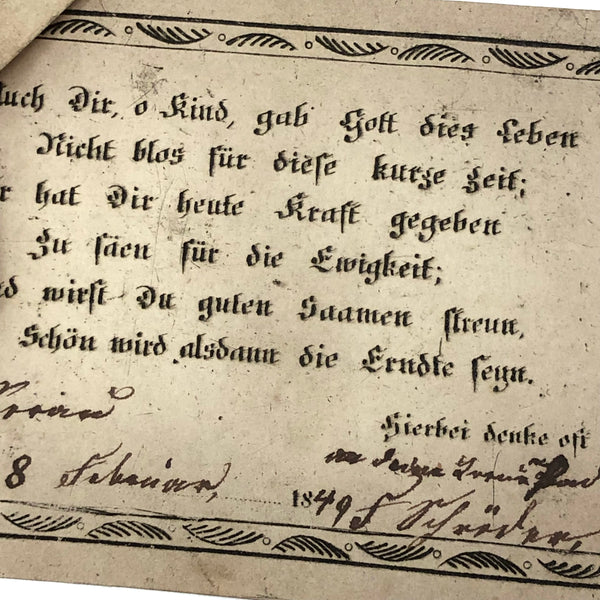 Auch Dir, o Kind, gab Gott dies Leben
Nicht blos für diese kurze Zeit;
r hat Dir heute Kraft gegeben
Zu säen für die Ewigkeit;
nd wirst Du guten Saamen streun,
Schön wird alsdann die Erndte seyn.
Hierbei denke oft
an deine
8 Februar, 1849 F Schröder,